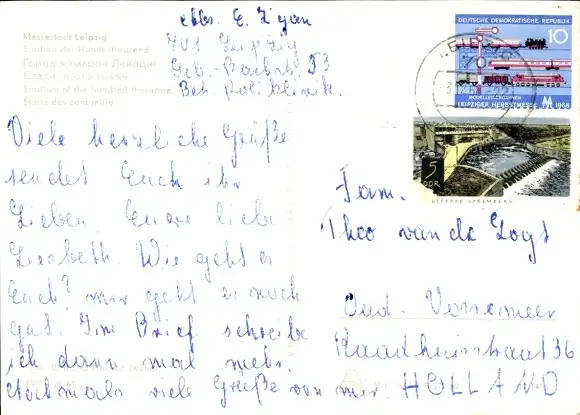 Messestadt Leipzig
Stadion der Hunderttausend
Город ярмарок Лейпциг
Stadion of the hundred thousand
Stade des cent mille
Abs. E. Zyan
701 Leipzig
Bet. Poliklinik.
DEUTSCHE DEMOKRATISCHE REPUBLIK
10
MODELLEISENBAHNEN
LEIPZIGER HERBSTMESSE 1968
5
DDR
SPREMBERG
Viele herzliche Grüße
sendet Euch ihr
Lieben, Eure liebe
Liesbeth. Wie geht es
Euch? mir geht es noch
gut. Im Brief schreibe
ich dann mal mehr.
Nochmals viele Grüße von mir.
Fam.
Theo van de
Oud. Vossemeer
Raadhuisstraat 36
HOLLAND